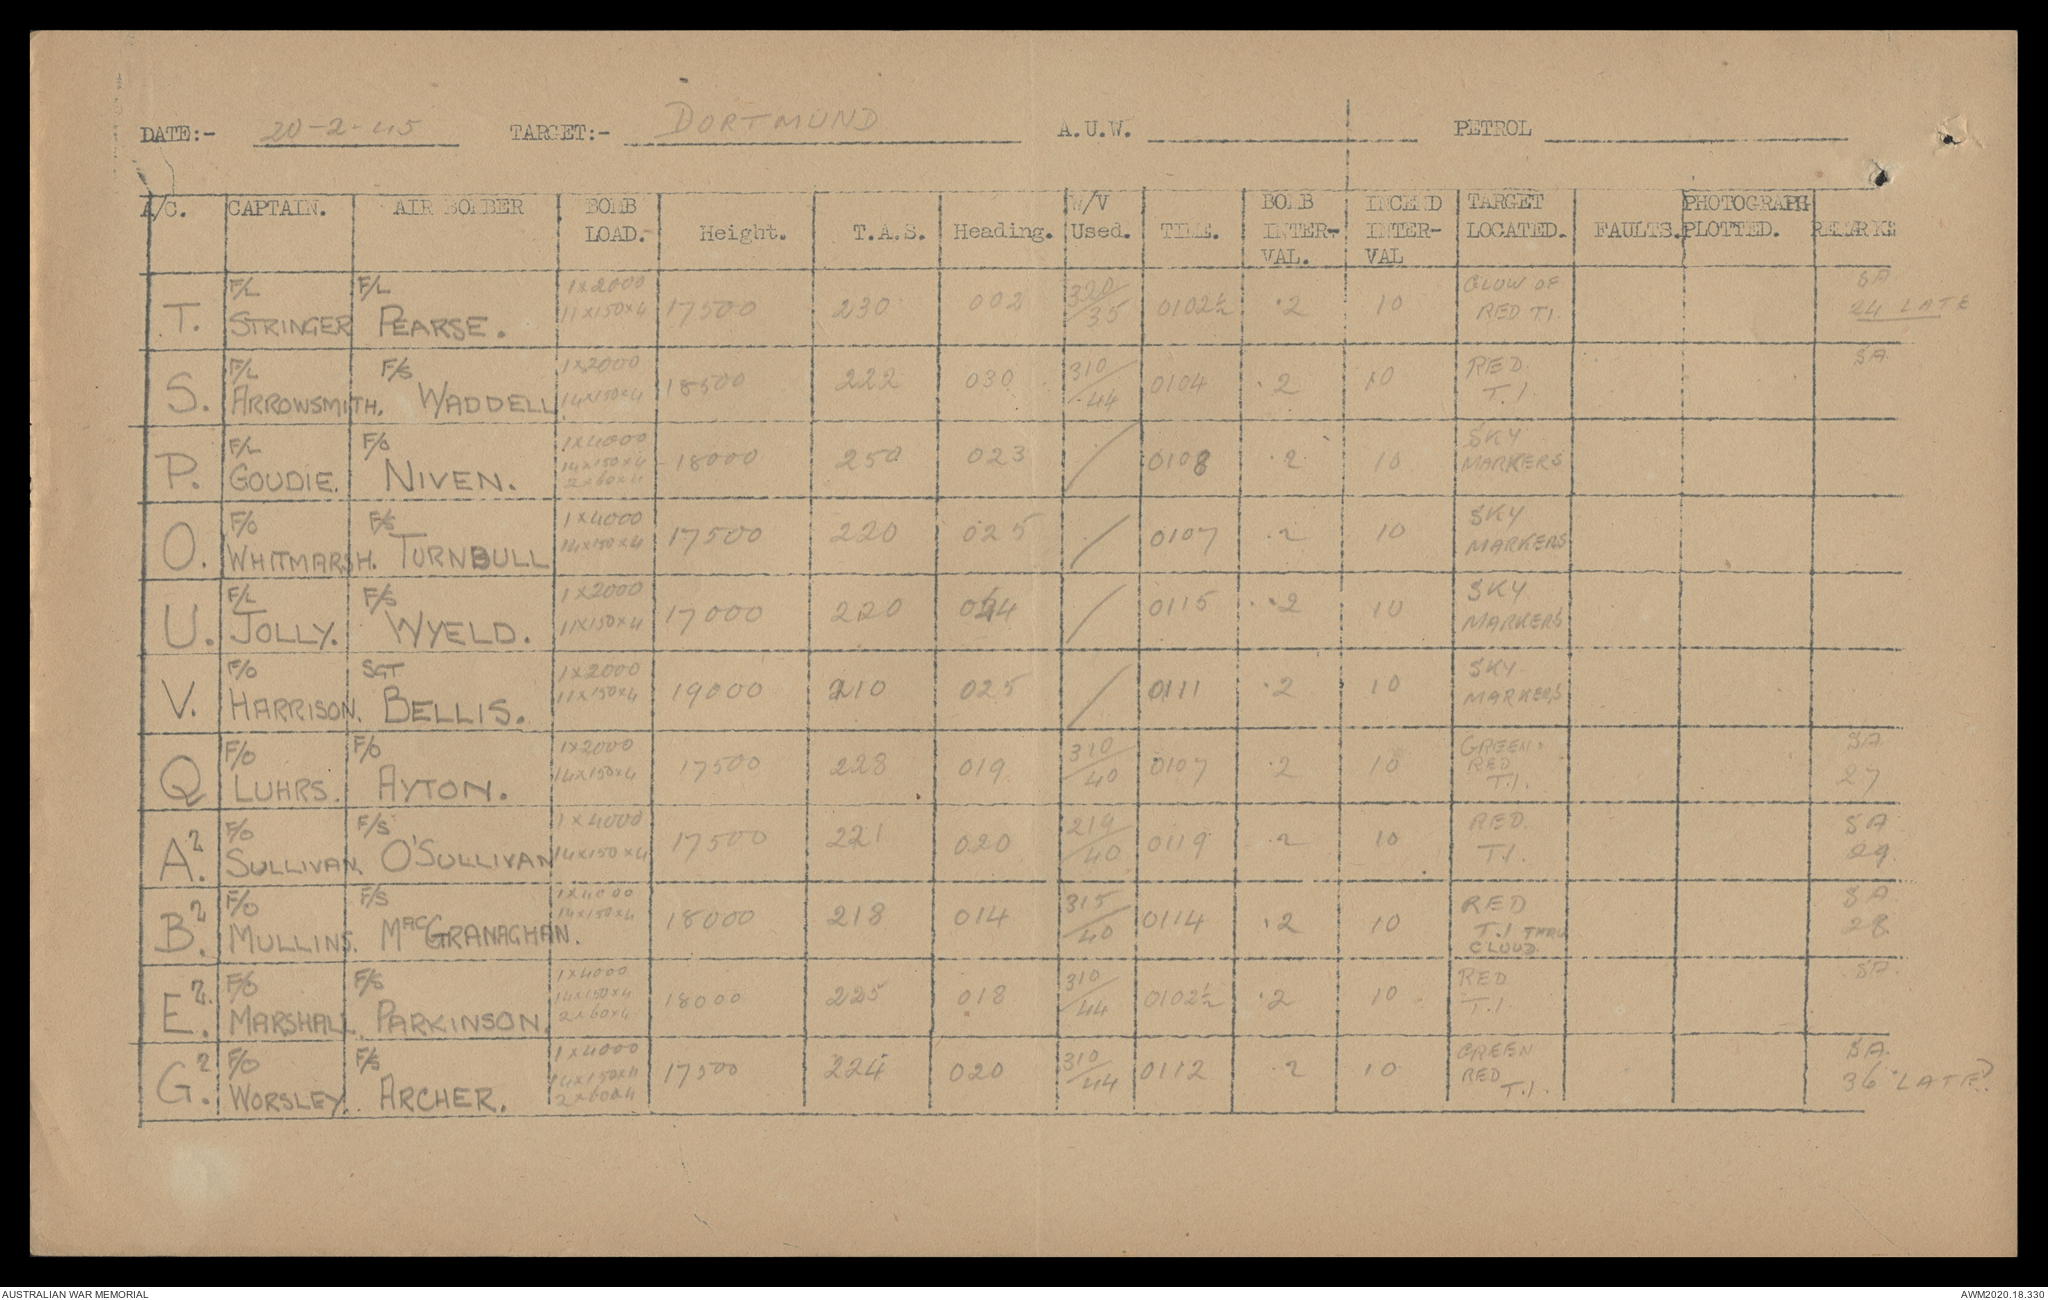 DATE:- 20-2-45 TARGET:- DORTMUND A.U.W. PETROL
A/C. CAPTAIN. AIR BOMBER BOMB LOAD. Height. T.A.S. Heading. W/V Used. TIME. BOMB INTER-VAL. INCEND INTER-VAL TARGET LOCATED. FAULTS. PHOTOGRAPH PLOTTED. REMARKS
T. F/L STRINGER F/L PEARSE. 1x2000 11x150x4 17500 230 002 320/35 0102½ .2 10 GLOW OF RED T.I. SA 24 LATE
S. F/L ARROWSMITH. F/S WADDELL. 1x2000 14x150x4 18500 222 030 310/44 0104 .2 10 RED T.I. SA
P. F/L GOUDIE. F/O NIVEN. 1x4000 14x150x4 2x60x4 18000 250 023 / 0108 .2 10 SKY MARKERS
O. F/O WHITMARSH. F/S TURNBULL 1x4000 14x150x4 17500 220 025 / 0107 .2 10 SKY MARKERS
U. F/L JOLLY. F/S WYELD. 1x2000 11x150x4 17000 220 024 / 0115 .2 10 SKY MARKERS
V. F/O HARRISON. SGT BELLIS. 1x2000 11x150x4 19000 210 025 / 0111 .2 10 SKY MARKERS
Q F/O LUHRS. F/O AYTON. 1x2000 14x150x4 17500 228 019 310/40 0107 .2 10 GREEN. RED T.I. SA 27
A². F/O SULLIVAN. F/S O'SULLIVAN 1x4000 14x150x4 17500 221 020 219/40 0119 .2 10 RED T.I. SA 29
B². F/O MULLINS. F/S MacGRANAGHAN. 1x4000 14x150x4 18000 218 014 315/40 0114 .2 10 RED T.I THRU CLOUD. SA 28
E². F/O MARSHALL. F/S PARKINSON. 1x4000 14x150x4 2x60x4 18000 225 018 310/44 0102½ .2 10 RED T.I. SA
G². F/O WORSLEY. F/S ARCHER. 1x4000 14x150x4 2x60x4 17500 224 020 310/44 0112 .2 10 GREEN RED T.I. SA. 36 LATE?
AUSTRALIAN WAR MEMORIAL
AWM2020.18.330